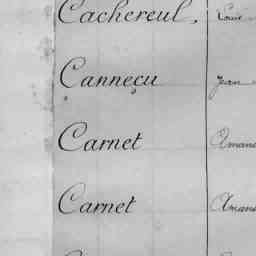 Cachereul, Louis
Canneçu Jean
Carnet Amand
Carnet Amand